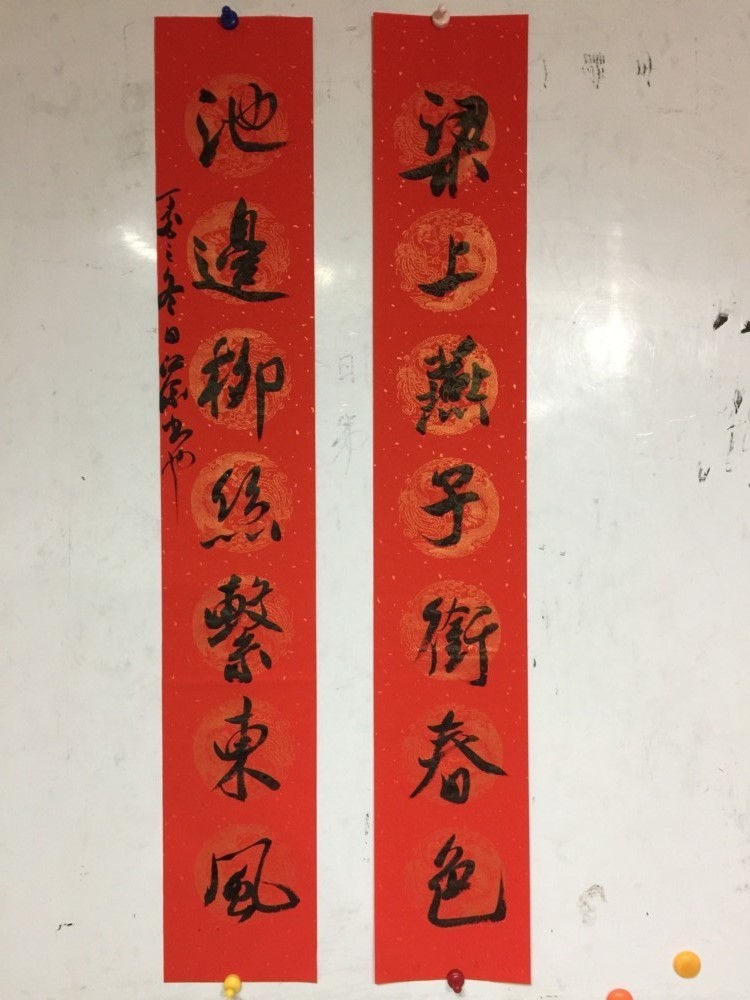 梁上燕子銜春色
池邊柳絲繫東風
冬日